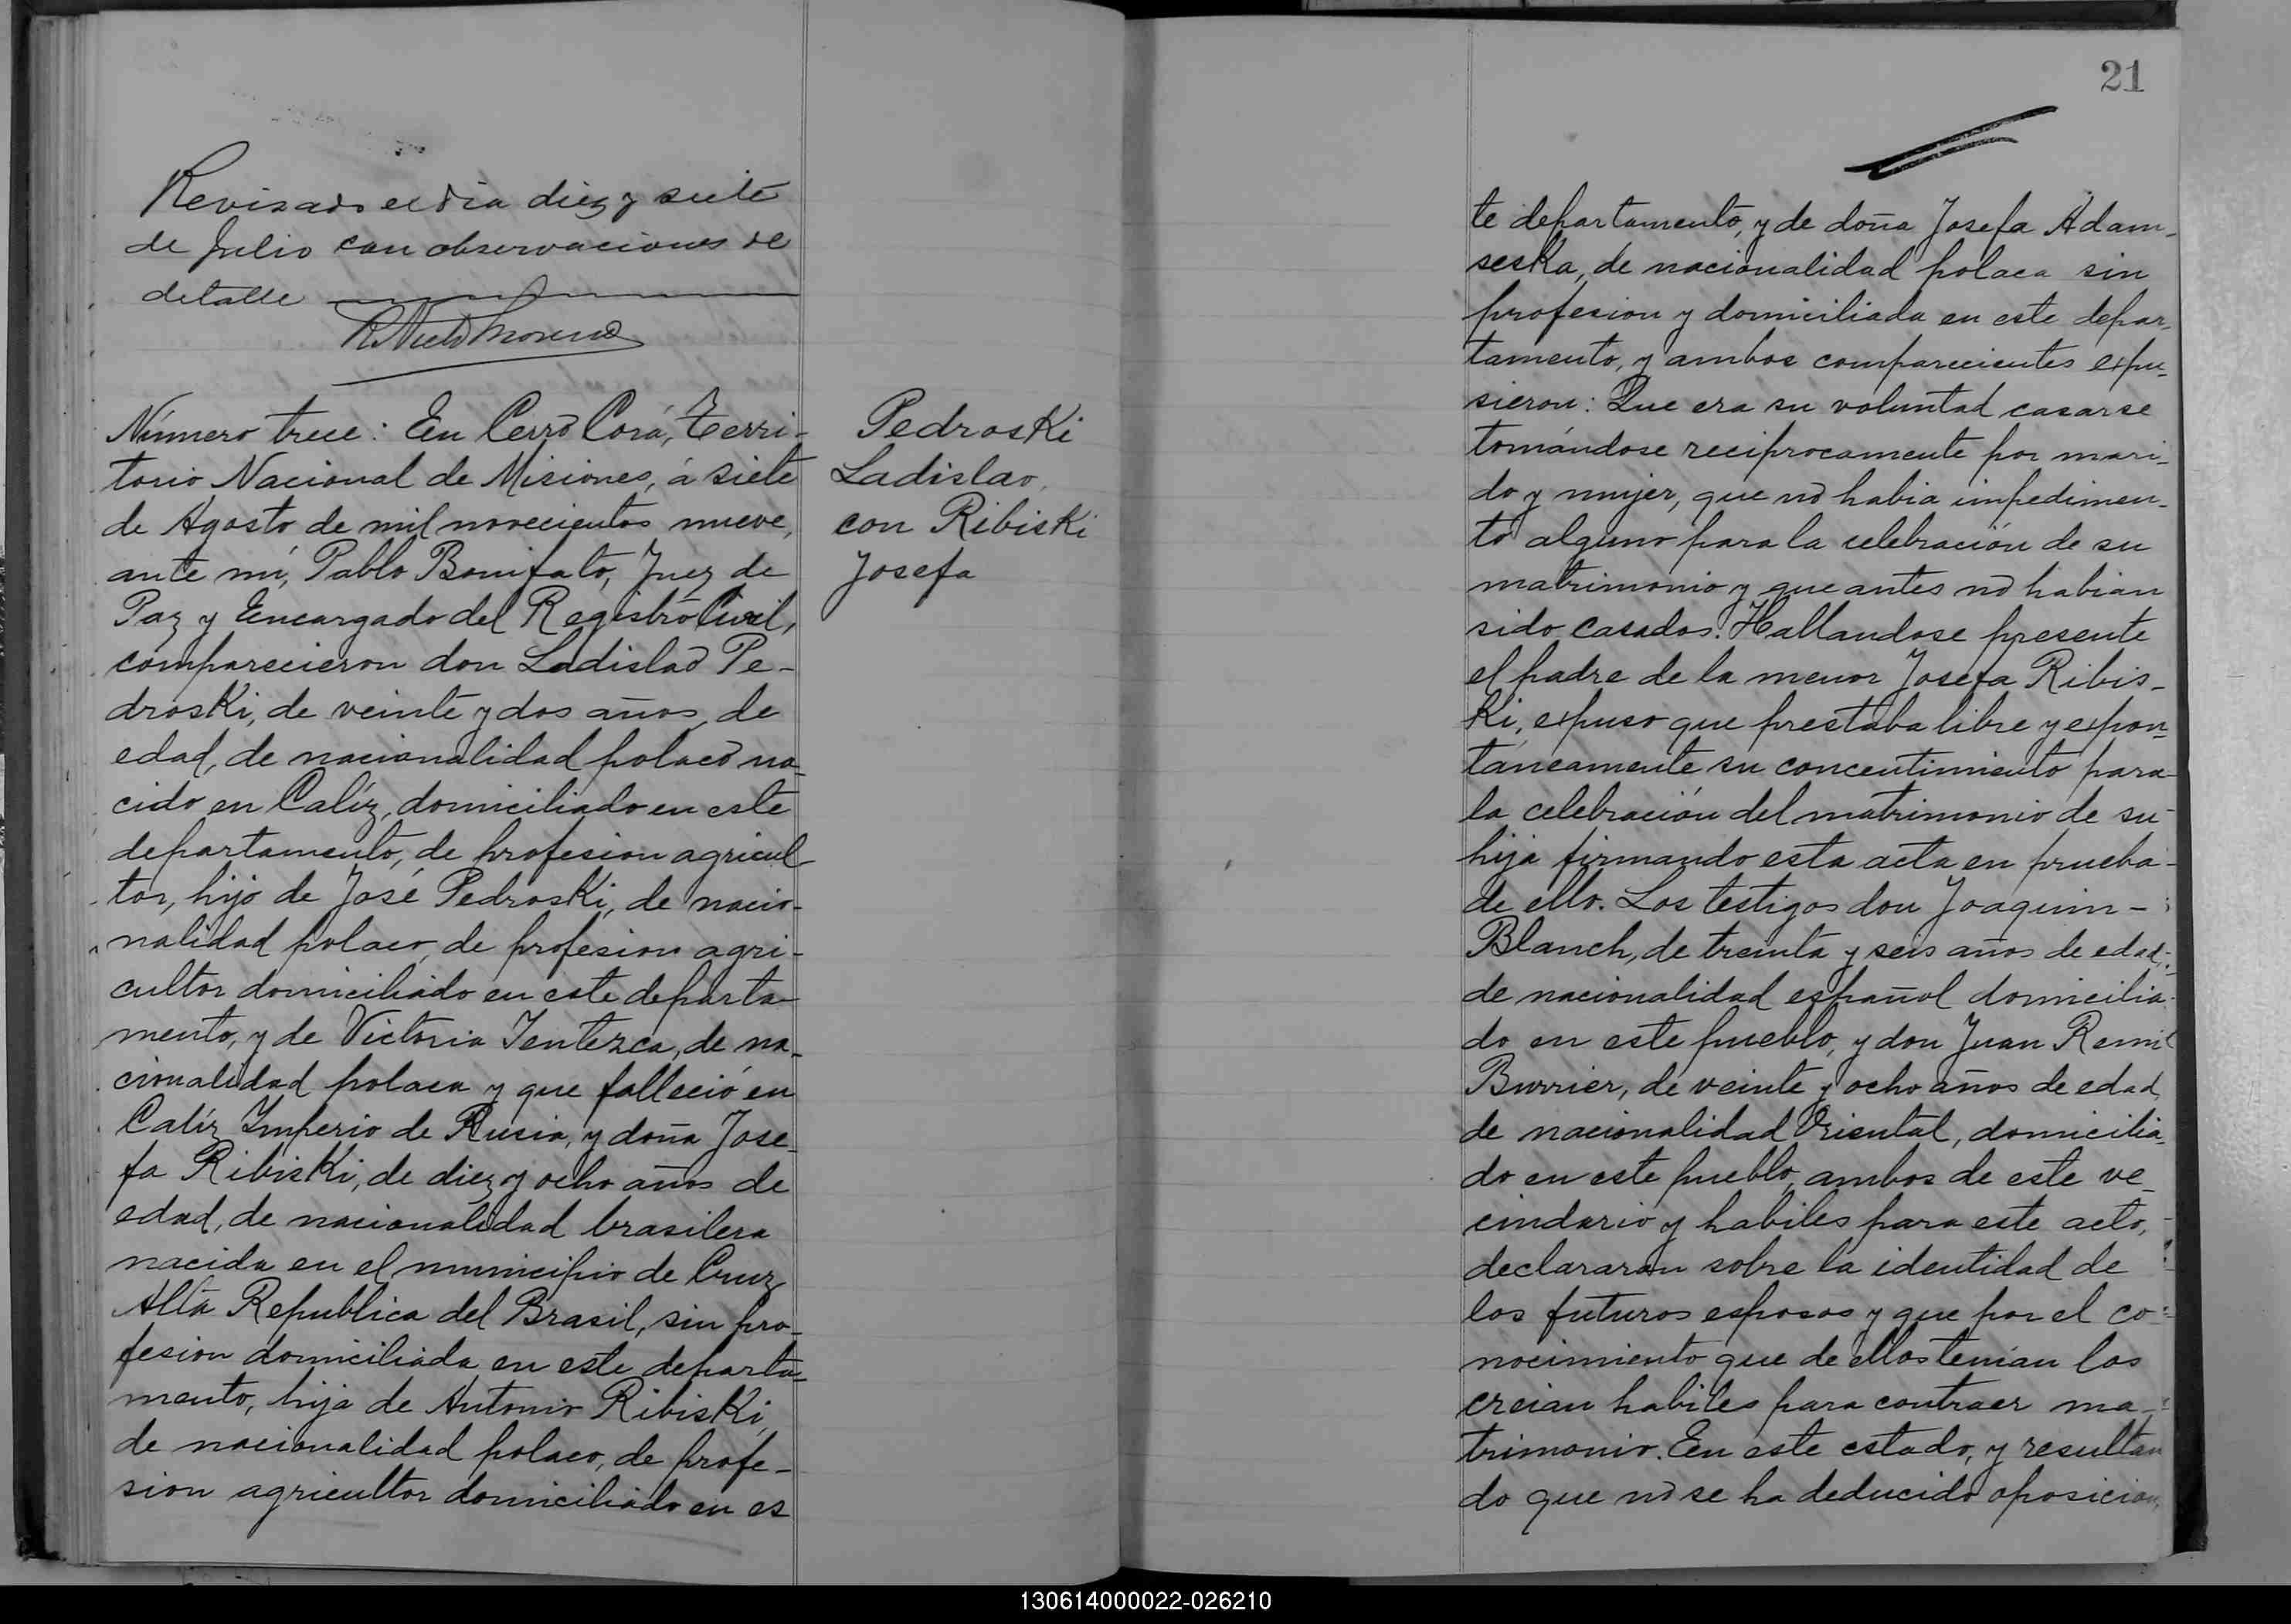 Revisado el dia diez y siete
de Julio con observaciones de
detalle
R. Nieto Moreno
Número trece: En Cerro Corá, Terri-
torio Nacional de Misiones, á siete
de Agosto de mil novecientos nueve,
ante mí, Pablo Bonifato, Juez de
Paz y Encargado del Registro Civil,
comparecieron don Ladislao Pe-
droski, de veinte y dos años, de
edad, de nacionalidad polaco na-
cido en Calíz, domiciliado en este
departamento, de profesion agricul
tor, hijo de José Pedroski, de nacio-
nalidad polaco, de profesion agri-
cultor domiciliado en este departa-
mento, y de Victoria Tentezca, de na-
cionalidad polaca y que falleció en
Calíz Imperio de Rusia, y doña Jose-
fa Ribiski, de diez y ocho años de
edad, de nacionalidad brasilera
nacida en el municipio de Cruz
Alta Republica del Brasil, sin pro-
fesion domiciliada en este departa-
mento, hija de Antonio Ribiski,
de nacionalidad polaco, de profe-
sion agricultor domiciliado en es
Pedroski
Ladislao,
con Ribiski
Josefa
21
te departamento, y de doña Josefa Adam-
seska, de nacionalidad polaca sin
profesion y domiciliada en este depar-
tamento, y ambos comparecientes expu-
sieron: Que era su voluntad casarse
tomándose reciprocamente por mari-
do y mujer, que no habia impedimen-
to alguno para la celebración de su
matrimonio y que antes no habian
sido casados. Hallandose presente
el padre de la menor Josefa Ribis-
ki, expuso que prestaba libre y expon-
táneamente su concentimiento para
la celebración del matrimonio de su
hija firmando esta acta en prueba
de ello. Los testigos don Joaquin
Blanch, de treinta y seis años de edad,
de nacionalidad español domicilia-
do en este pueblo, y don Juan Remi
Burrier, de veinte y ocho años de edad,
de nacionalidad Oriental, domicilia-
do en este pueblo, ambos de este ve-
cindario y habiles para este acto,
declararan sobre la identidad de
los futuros esposos y que por el co-
nocimiento que de ellos tenian los
creian habiles para contraer ma-
trimonio. En este estado, y resultan
do que no se ha deducido oposicion,
130614000022-026210